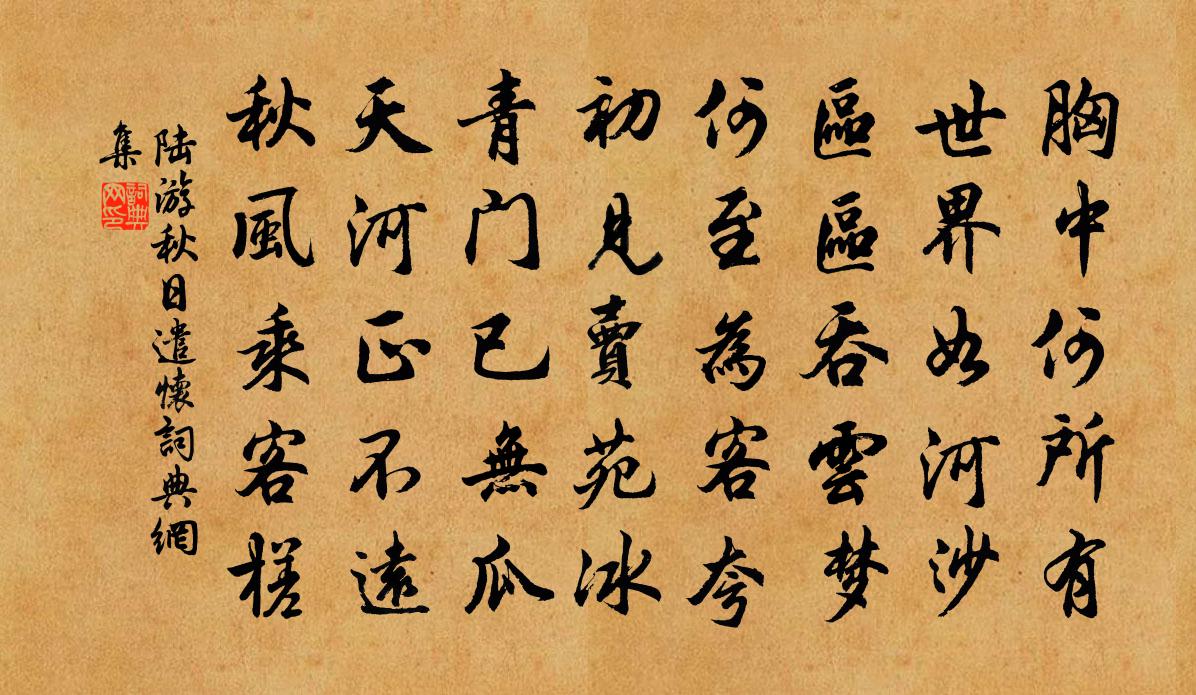 胸中何所有
世界如河沙
區區吞雲梦
何至為客夸
初見賣苑冰
青门已無瓜
天河正不遠
秋風乘客槎
陆游秋日遣懷詞典網
集
詞典网印